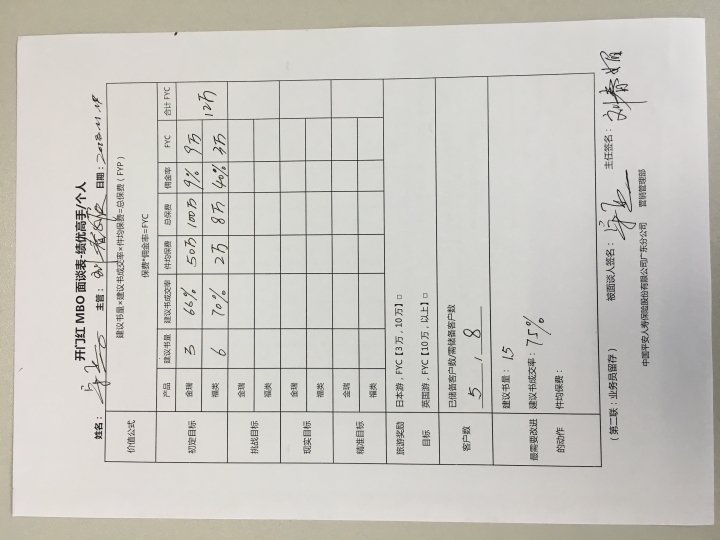 开门红 MBO 面谈表-绩优高手/个人
姓名： 主管： 日期：2018.11.18
价值公式 建议书量×建议书成交率×件均保费=总保费（FYP）
保费*佣金率=FYC
产品 建议书量 建议书成交率 件均保费 总保费 佣金率 FYC 合计 FYC
初定目标 金瑞 3 66% 50万 100万 9% 9万 12万
福类 6 70% 2万 8万 40% 3万
挑战目标 金瑞
福类
现实目标 金瑞
福类
精准目标 金瑞
福类
旅游奖励 日本游，FYC【3万，10万】□
目标 英国游，FYC【10万，以上】□
客户数 已储备客户数/需储备客户数
5 , 8
最需要改进 建议书量： 15
的动作 建议书成交率： 75%
件均保费：
（第二联：业务员留存） 被面谈人签名： 主任签名：
中国平安人寿保险股份有限公司广东分公司 营销管理部